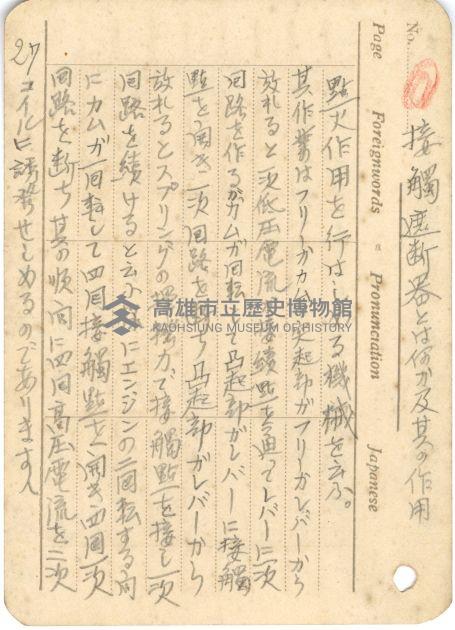 No.
Page Foreignwords Pronunciation Japanese
接觸遮断器とは何か及其の作用
點火作用を行はしむる機械を云ふ。
其作業はフリーカカム突起部がフリーカレバーから
放れると一次低圧電流は接續點を通ってレバーに一次
回路を作るがカムが回転して凸起部がレバーに接觸
點を開き一次回路を断ち凸起部がレバーから
放れるとスプリングの弾力で接觸點を接し一次
回路を續けると云ふ にエンジンの二回転する間
にカムが一回転して四回接觸點を開き四回一次
回路を断ち其の順向に四回高圧電流を二次
コイルに誘發せしめるのであります
27
高雄市立歷史博物館
KAOHSIUNG MUSEUM OF HISTORY